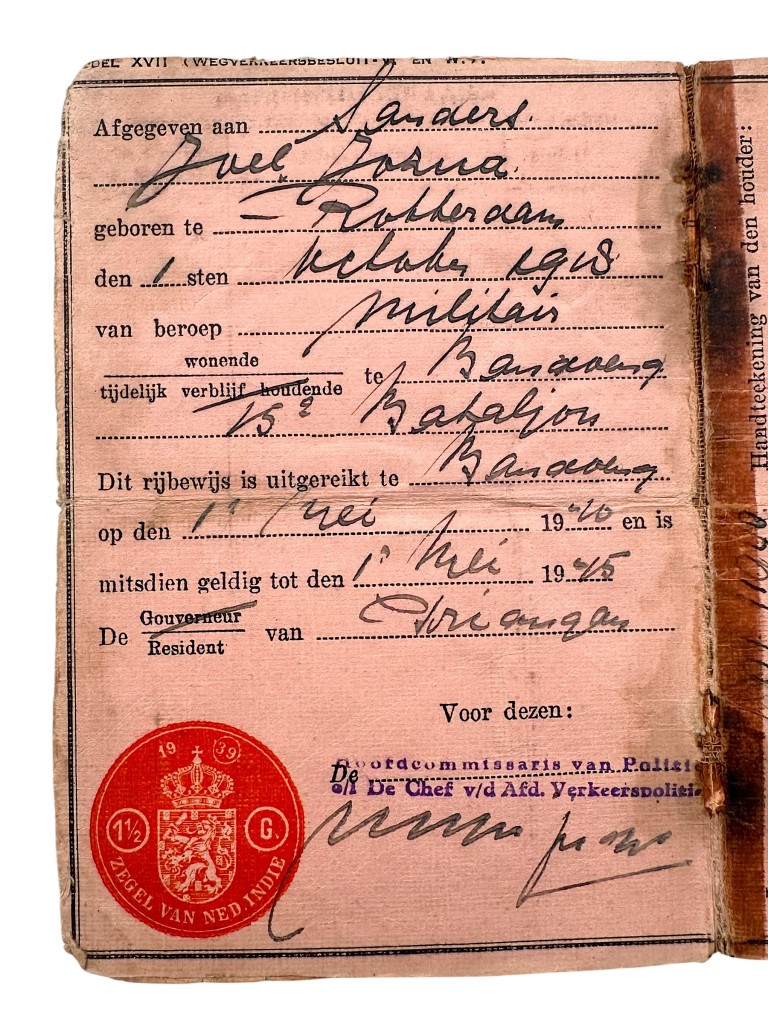 DEL XVII (WEGVERKEERSBESLUIT
Afgegeven aan Sanders.
Joël Jozua.
geboren te – Rotterdam
den 1 sten October 1918
van beroep militair
wonende
tijdelijk verblijf houdende te Bandoeng
15e Bataljon
Dit rijbewijs is uitgereikt te Bandoeng
op den 1e Mei 1940 en is
mitsdien geldig tot den 1e Mei 1945
De Gouverneur
Resident van Priangan
Voor dezen:
De Hoofdcommissaris van Politie
o/l De Chef v/d Afd. Verkeerspolitie
19 39
1½ G.
ZEGEL VAN NED INDIE
Handteekening van den houder: